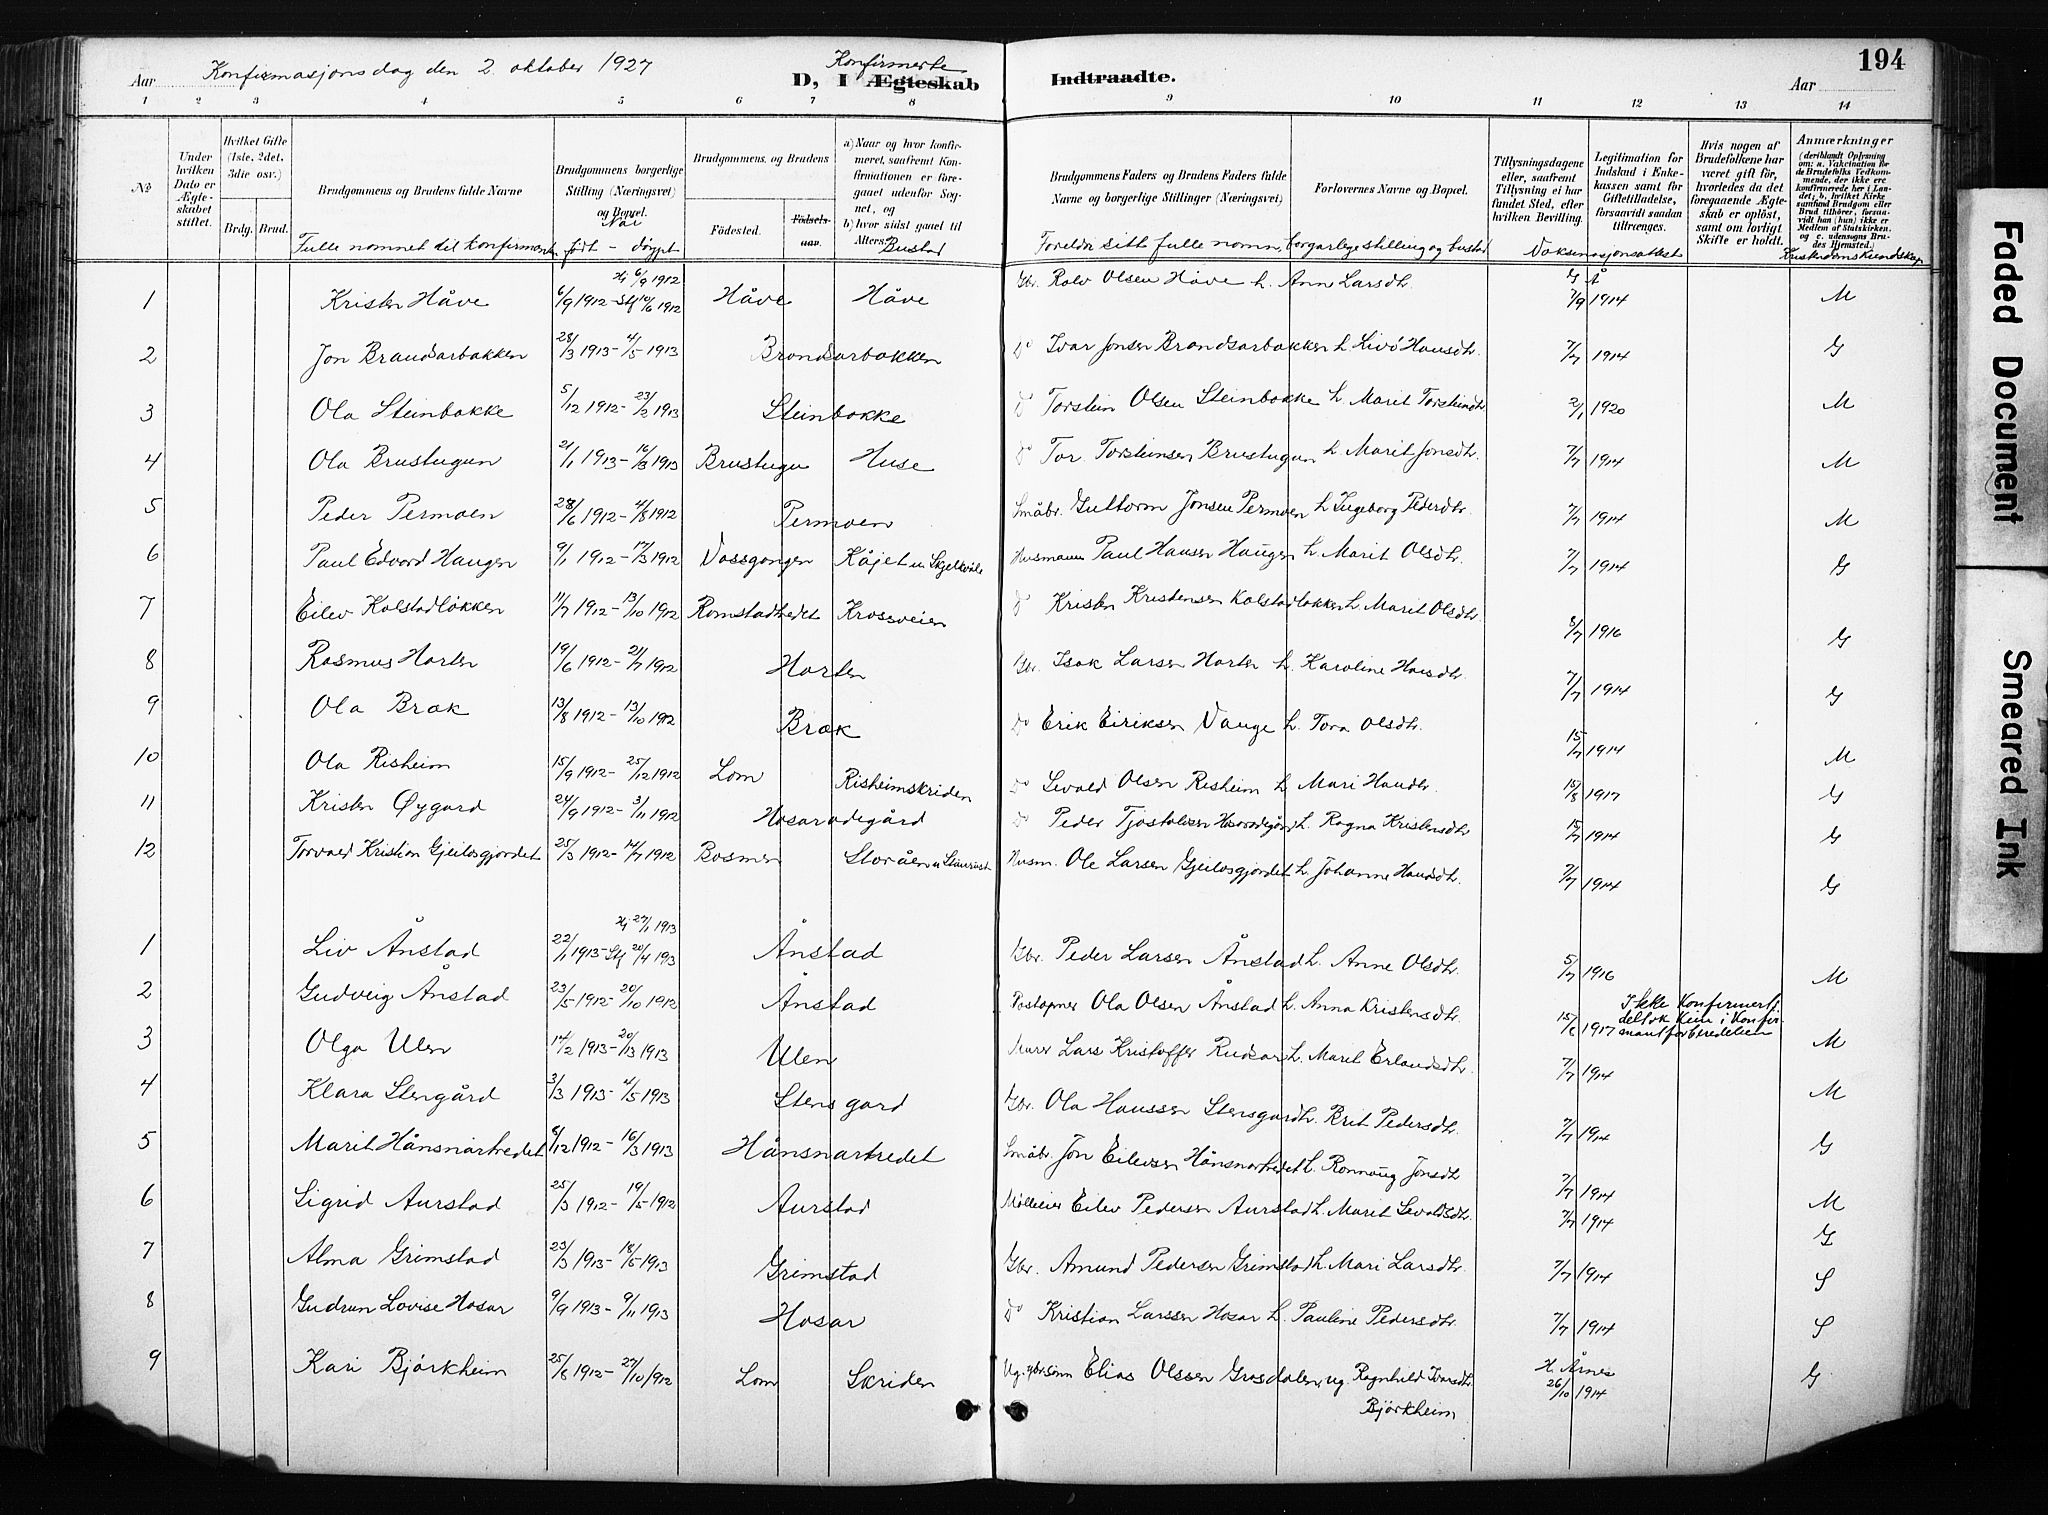 194
Aar Konfirmasjonsdag den 2. oktober 1927
Konfirmerte
D, I Ægteskab Indtraadte.
Aar
1 2 3 4 5 6 7 8 9 10 11 12 13 14
No
Under hvilken Dato er Ægteskabet stiftet.
Hvilket Gifte (1ste, 2det, 3die osv.)
Brdg. Brud.
Brudgommens og Brudens fulde Navne
Fulle nomnet til konfirmanten
Brudgommens borgerlige Stilling (Næringsvei) og Bopæl.
Når
født – døypt
Brudgommens, og Brudens
Födested.
Födsels-aar.
a) Naar og hvor konfirmeret, saafremt Konfirmationen er foregaaet udenfor Sognet, og
b) hvor sidst gaaet til Alters.
Bustad
Brudgommens Faders og Brudens Faders fulde Navne og borgerlige Stillinger (Næringsvei)
Forlovernes Navne og Bopæl.
Foreldri sitt fulle nomn, borgarlege stilling og bustad
Tillysningsdagene eller, saafremt Tillysning ei har fundet Sted, efter hvilken Bevilling.
Legitimation for Indskud i Enkekassen samt for Giftetilladelse, forsaavidt saadan tiltrænges.
Vaksinasjonsattest
Hvis nogen af Brudefolkene har været gift før, hvorledes da det foregaaende Ægteskab er opløst, samt om lovligt Skifte er holdt.
Anmærkninger
(deriblandt Oplysning om: a. Vakcination for de Brudefolks Vedkommende, der ikke ere konfirmerede her i Landet; b. hvilket Kirkesamfund Brudgom eller Brud tilhører, forsaavidt han (hun) ikke er Medlem af Statskirken, og c. udensogns Brudes Hjemsted.)
Kristendomskundskap
1 Kristen Håve 6/9 1912 – Hj 6/9 1912 Skj 10/6 1912 Håve Håve Gbr. Rolv Olsen Håve h. Ann Larsdtr. 7/9 1914 M
2 Jon Brandsarbakken 28/3 1913 – 4/5 1913 Brandsarbakken Do Ivar Jonsen Brandsarbakken h. Livö Hansdtr. 7/7 1914 G
3 Ola Steinbakke 5/12 1912 – 23/2 1913 Steinbakke Do Torstein Olsen Steinbakke h. Marit Torsteindtr. 2/1 1920 M
4 Ola Brustugun 21/1 1913 – 16/3 1913 Brustugu Huse Do Tor Torsteinsen Brustugun h. Marit Jonsdtr. 7/7 1914 M
5 Peder Permoen 28/6 1912 – 4/8 1912 Permoen Småbr. Guttorm Jonsen Permoen h. Ingeborg Pedersdtr. 7/7 1914 M
6 Paul Edvard Haugen 9/1 1912 – 17/3 1912 Vassgongen Kåjet u. Skjelkvåle Husmann Paul Hansen Haugen h. Marit Olsdtr. 7/7 1914 G
7 Eilev Kolstadløkken 11/7 1912 – 13/10 1912 Romstadtredet Krossveien Do Kristen Kristensen Kolstadløkken h. Marit Olsdtr. 8/7 1916 G
8 Rasmus Harten 19/6 1912 – 21/7 1912 Harten Gbr. Isak Larsen Harten h. Karoline Hansdtr. 7/7 1914 G
9 Ola Bræk 13/8 1912 – 13/10 1912 Bræk Do Erik Eiriksen Vange h. Tora Olsdtr. 15/7 1914 M
10 Ola Risheim 15/9 1912 – 25/12 1912 Lom Risheimskriden Do Sevald Olsen Risheim h. Mari Hansdtr. 15/8 1917 G
11 Kristen Øygard 24/9 1912 – 3/11 1912 Hosarødegård Do Peder Tjøstolvsen Hosarødegård h. Ragna Kristensdtr. 15/7 1914 G
12 Torvald Kristian Gjeilosgjordet 25/3 1912 – 14/7 1912 Bosmen Storåen u. Staurust Husm. Ole Larsen Gjeilosgjordet h. Johanne Hansdtr. 7/7 1914 G
1 Liv Ånstad 22/1 1913 – Hj 27/1 1913 Skj 20/4 1913 Ånstad Gbr. Peder Larsen Ånstad h. Anne Olsdtr. 5/7 1916 M
2 Gudveig Ånstad 23/5 1912 – 20/10 1912 Ånstad Postopner Ola Olsen Ånstad h. Anna Kristensdtr. 15/6 1917 Ikke Konfirmert; deltok kun i Konfirmantforberedelsen M
3 Olga Ulen 14/2 1913 – 20/3 1913 Ulen Murer Lars Kristoffer Rudsar h. Marit Erlandsdtr. 7/7 1914 M
4 Klara Stengård 3/3 1913 – 4/5 1913 Stensgard Gbr. Ola Hanssen Stensgard h. Brit Pedersdtr. 7/7 1914 G
5 Marit Hånsnartredet 8/12 1912 – 16/3 1913 Hånsnartredet Småbr. Jon Eilevsen Hånsnartredet h. Rønnaug Jonsdtr. 7/7 1914 M
6 Sigrid Aurstad 25/3 1912 – 19/5 1912 Aurstad Mölleeier Eilev Pedersen Aurstad h. Marit Sevaldsdtr. 7/7 1914 G
7 Alma Grimstad 23/3 1913 – 18/5 1913 Grimstad Gbr. Amund Pedersen Grimstad h. Mari Larsdtr. 7/7 1914 S
8 Gudrun Lovise Hosar 9/9 1913 – 9/11 1913 Hosar Do Kristian Larssen Hosar h. Pauline Pedersdtr. 7/7 1914 S
9 Kari Bjørkheim 25/8 1912 – 27/10 1912 Lom Skriden Ug. gbr.sønn Elias Olssen Grosdalen, ug. Ragnhild Ivarsdtr. Bjørkheim H. Årnes 26/10 1914 G
Faded Document
Smeared Ink